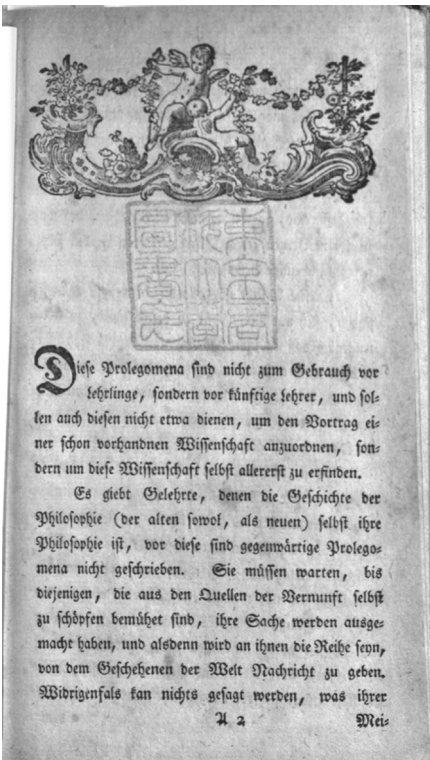 Diese Prolegomena sind nicht zum Gebrauch vor
Lehrlinge, sondern vor künftige Lehrer, und sol-
len auch diesen nicht etwa dienen, um den Vortrag ei-
ner schon vorhandnen Wissenschaft anzuordnen, son-
dern um diese Wissenschaft selbst allererst zu erfinden.
Es giebt Gelehrte, denen die Geschichte der
Philosophie (der alten sowol, als neuen) selbst ihre
Philosophie ist, vor diese sind gegenwärtige Prolego-
mena nicht geschrieben. Sie müssen warten, bis
diejenigen, die aus den Quellen der Vernunft selbst
zu schöpfen bemühet sind, ihre Sache werden ausge-
macht haben, und alsdenn wird an ihnen die Reihe seyn,
von dem Geschehenen der Welt Nachricht zu geben.
Widrigenfals kan nichts gesagt werden, was ihrer
A 2 Mei-